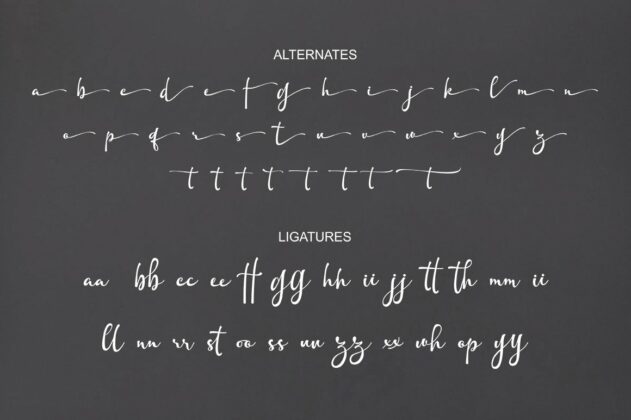 ALTERNATES
a b c d e f g h i j k l m n
o p q r s t u v w x y z
t t t t t t t t
LIGATURES
aa bb cc ee ff gg hh ii jj tt th mm ii
ll nn rr st oo ss uu zz xx wh op yy